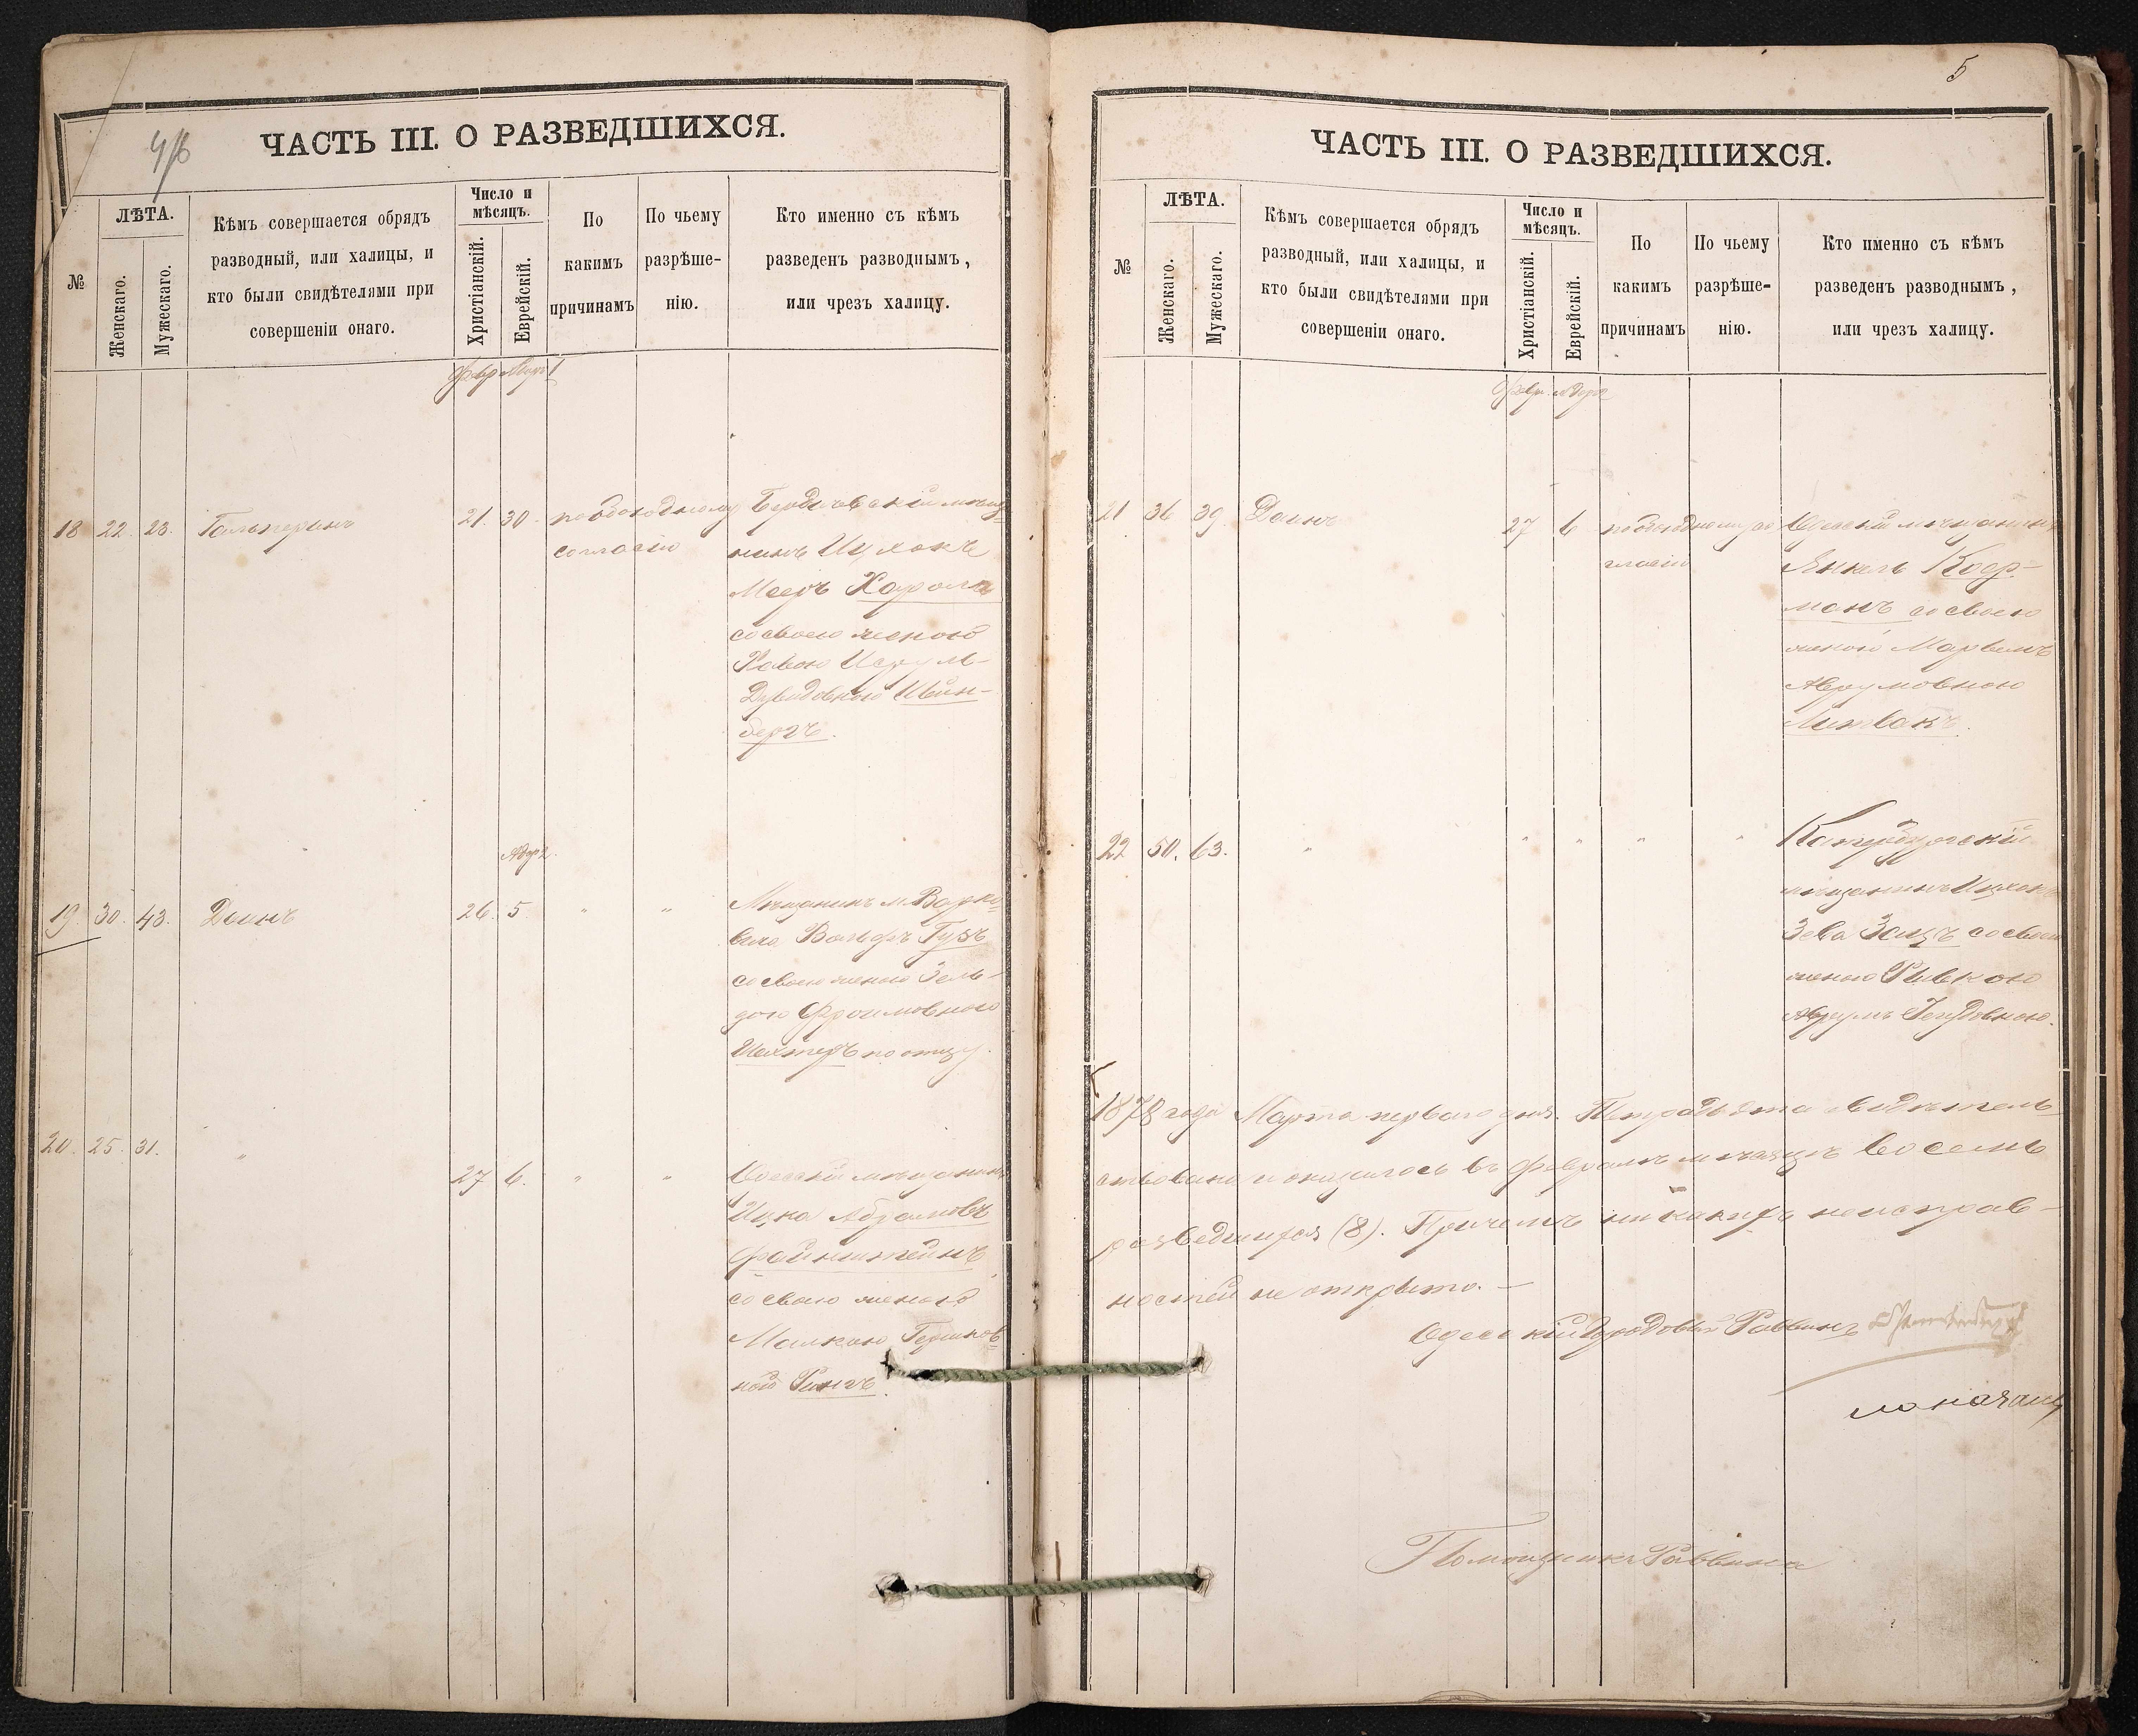 ЧАСТЬ III. О РАЗВЕДШИХСЯ.
№
ЛѢТА.
Женскаго.
Мужескаго.
Кѣмъ совершается обрядъ
разводный, или халицы, и
кто были свидѣтелями при
совершеніи онаго.
Число и
мѣсяцъ.
Христіанскій.
Еврейскій.
По
какимъ
причинамъ
По чьему
разрѣше-
нію.
Кто именно съ кѣмъ
разведенъ разводнымъ,
или чрезъ халицу.
Февр Адръ 1
18 22. 23. Гальперинъ 21. 30. по обоюдному Бердичевскій мѣща-
согласію нинъ Ицхокъ
Мееръ
со своею женою
Хавою Исруль-
Дувидовною Швин-
бергъ.
Адръ 2.
19. 30. 43. Даинъ 26. 5. " " Мѣщанинъ м.
Вольфъ Гузъ
со своею женою Зель-
дою Фроимовною
Шехтеръ по отцу.
20. 25. 31. " 27 6. " " Одесскій мѣщанинъ
Ицко
Файнштейнъ
со своею женою
Малкою Гершков-
ной Рингъ.
5
ЧАСТЬ III. О РАЗВЕДШИХСЯ.
№
ЛѢТА.
Женскаго.
Мужескаго.
Кѣмъ совершается обрядъ
разводный, или халицы, и
кто были свидѣтелями при
совершеніи онаго.
Число и
мѣсяцъ.
Христіанскій.
Еврейскій.
По
какимъ
причинамъ
По чьему
разрѣше-
нію.
Кто именно съ кѣмъ
разведенъ разводнымъ,
или чрезъ халицу.
Февр. Адръ 2
21 36 39. Даинъ 27 6 по обоюдному со Одесскій мѣщанинъ
гласію Янкель Коф-
манъ со своею
женой
Аврумовною
Литвакъ.
22 50. 63. " " " " "
мѣщанинъ Ицхокъ
Зевъ Зацъ со своею
женою Ривкою
Аврумъ Іегудовною.
1878 года Марта перваго дня. Тетрадь эта свидѣтель-
ствована и оказалось въ Февралѣ мѣсяцѣ восемь
разведшихся (8). Причемъ никакихъ неисправ-
ностей не открыто. —
Одесскій Городовый Раввинъ
Помощникъ Раввина